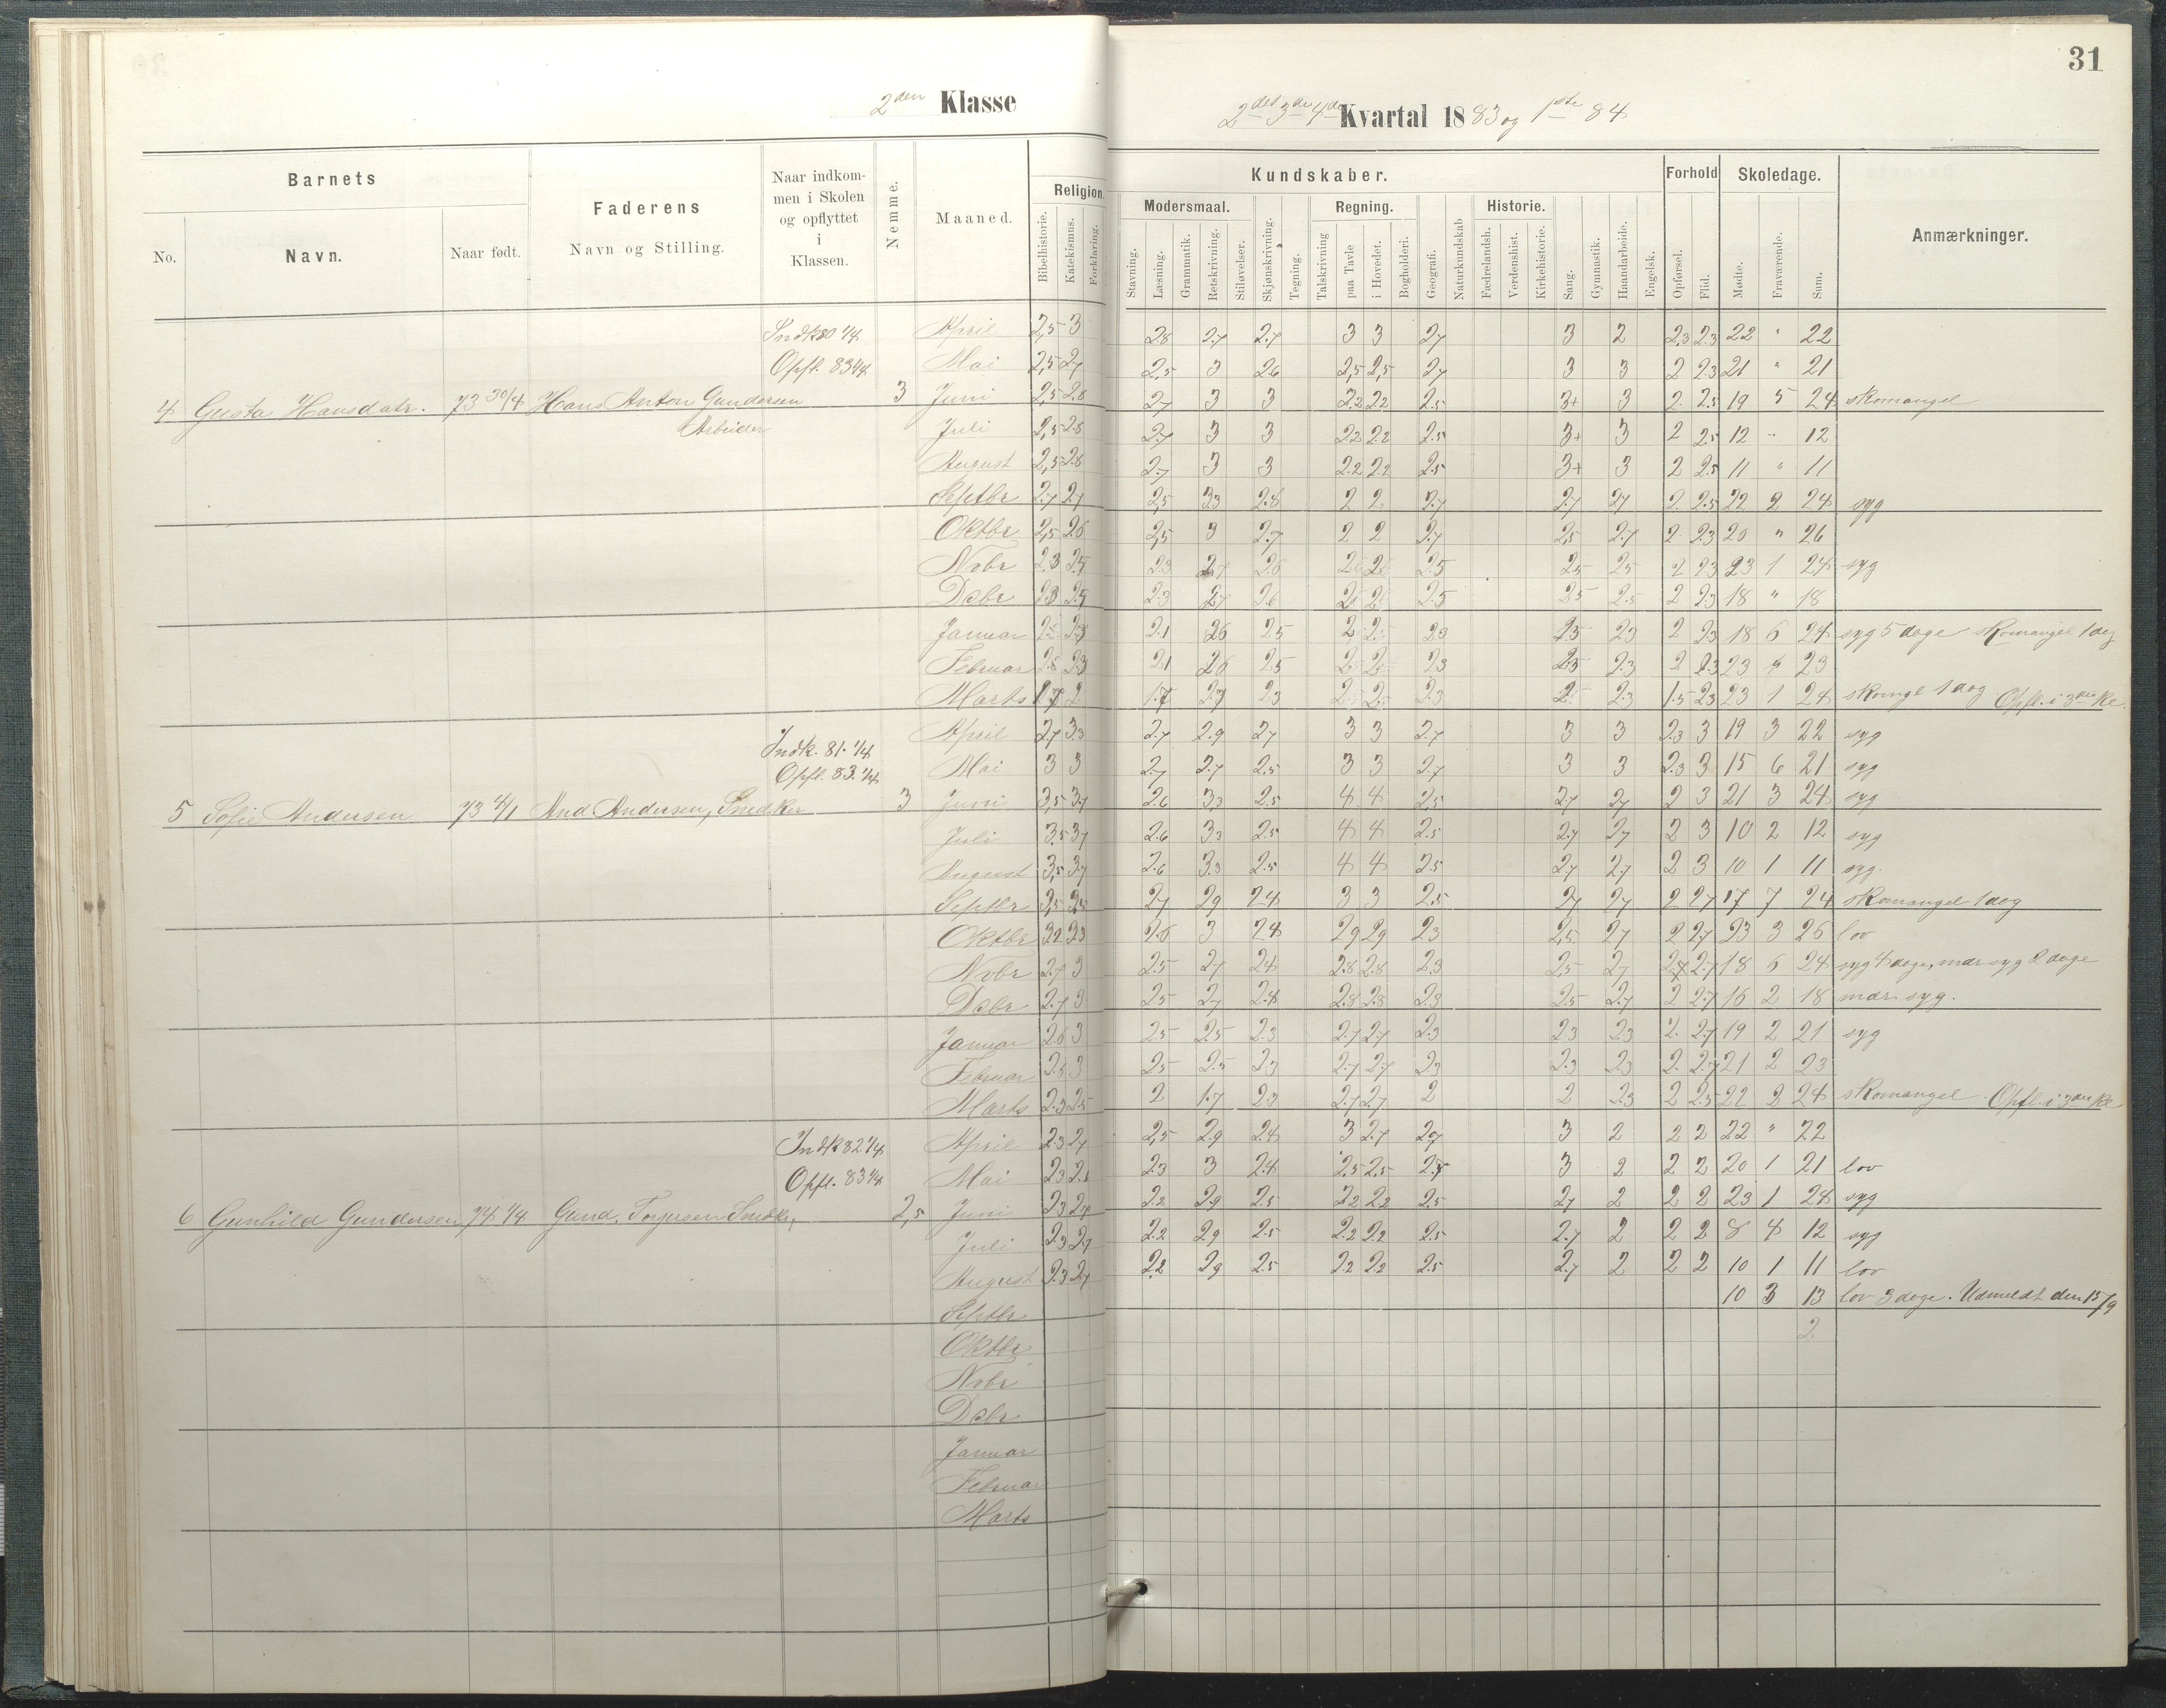 31
2den Klasse
2det 3de 4de Kvartal 1883 og 1ste 84
Barnets
Faderens
Naar indkommen i Skolen og opflyttet i Klassen.
Nemme.
Maaned.
Religion.
Kundskaber.
Forhold
Skoledage.
Anmærkninger.
Modersmaal.
Regning.
Historie.
No.
Navn.
Naar født.
Navn og Stilling.
Bibelhistorie. Katekismus. Forklaring. Stavning. Læsning. Grammatik. Retskrivning. Stiløvelser. Skjønskrivning. Tegning. Talskrivning paa Tavle i Hovedet. Bogholderi. Geografi. Naturkundskab Fædrelandsh. Verdenshist. Kirkehistorie. Sang. Gymnastik. Haandarbeide. Engelsk. Opførsel. Flid. Mødte. Fraværende. Sum.
Indk 80 1/4 April 2,5 3 2.8 2.7 2.7 3 3 2.7 3 2 2.3 2.3 22 " 22
Opfl. 83 1/4 Mai 2,5 2.7 2,5 3 2.6 2,5 2,5 2.7 3 3 2 2.3 21 " 21
4 Gusta Hansdatr. 73 30/4 Hans Anton Gundersen 3 Juni 2,5 2.8 2.7 3 3 2.2 2.2 2.5 3+ 3 2. 2.5 19 5 24 skomangel
Arbeider Juli 2,5 2.8 2.7 3 3 2.2 2.2 2.5 3+ 3 2 2.5 12 " 12
August 2,5 2.8 2.7 3 3 2.2 2.2 2.5 3+ 3 2 2.5 11 " 11
Septbr 2.7 2.7 2,5 2.3 2.8 2 2 2.7 2.7 2.7 2. 2.5 22 2 24 syg
Oktbr 2,5 2.6 2,5 3 2.7 2 2 2.7 2,5 2.7 2. 2.3 20 " 26
Nobr 2.3 2.5 2.3 2.7 2.6 2.5 2.5 2.5 2 2.3 23 1 24 syg
Debr 2.3 2.5 2.3 2.7 2.6 2.5 2.5 2.5 2 2.3 18 " 18
Januar 2.1 2.6 2.5 2.3 2.5 2.3 2 2.3 18 6 24 syg 5 dage skomangel 1 dag
Februar 2.3 2.1 2.6 2.5 2.3 2.5 2.3 2 2.3 23 " 23
Marts 1.7 2 1.7 2.7 2.3 2.5 2.5 2.3 2 2.3 1.5 2.3 23 1 24 skomgl 1 dag Opfl. i 3die Kl.
Indk. 81. 1/4 April 2.7 3.3 2.7 2.9 2.7 3 3 2.7 3 3 2.3 3 19 3 22 syg
Opfl. 83. 1/4 Mai 3 3 2.7 2.7 2.5 3 3 2.7 3 3 2.3 3 15 6 21 syg
5 Sofie Andersen 73 4/1 And Andersen, Snedker 3 Juni 3,5 3.7 2.6 3.3 2.5 4 4 2.5 2.7 2.7 2 3 21 3 24 syg
Juli 3.5 3.7 2.6 3.3 2.5 4 4 2.5 2.7 2.7 2 3 10 2 12 syg
August 3,5 3.7 2.6 3.3 2.5 4 4 2.5 2.7 2.7 2 3 10 1 11 syg.
Septbr 3,5 2.7 2.9 2.4 3 3 2.5 2.7 2.7 2 2.7 17 7 24 skomangel 1 dag
Oktbr 3.2 3.3 2.6 3 2.4 2.9 2.9 2.3 2,5 2.7 2 2.7 23 3 26 lov
Nobr 2.7 3 2.5 2.7 2.4 2.8 2.8 2.3 2,5 2.7 2.7 18 6 24 syg 4 dage, mdr syg 2 dage
Debr 2.7 3 2.5 2.7 2.4 2.8 2.8 2.3 2.5 2.7 2 2.7 16 2 18 mdr. syg.
Januar 2.6 3 2.5 2.5 2.3 2.7 2.7 2.3 2.3 2.3 2. 2.7 19 2 21 syg
Februar 2.6 3 2.5 2.5 2.3 2.7 2.7 2.3 2.3 2.3 2. 2.7 21 2 23
Marts 2.3 2.5 2 1.7 2.3 2.7 2.7 2 2 2.3 2 2.5 22 2 24 skomangel. Opfl. i 3die Kl
Indk 82 1/4 April 2.3 2.7 2,5 2.9 2.4 3 2.7 2.7 3 2 2 2 22 " 22
Opfl. 83 1/4 Mai 2.3 2.3 3 2.4 2,5 2,5 2.7 3 2 2 2 20 1 21 lov
6 Gunhild Gundersen 74 1/4 Gund. Torjusen Snedker, 2,5 Juni 2.3 2.7 2.2 2.9 2.5 2.2 2.2 2.5 2.7 2 2 2 23 1 24 syg
Juli 2.3 2.7 2.2 2.9 2.5 2.2 2.2 2.5 2.7 2 2 2 8 4 12 syg
August 2.3 2.7 2.2 2.9 2.5 2.2 2.2 2.5 2.7 2 2 2 10 1 11 lov
Septbr 10 3 13 lov 3 dage. Udmeldt den 15/9
Oktbr 2
Nobr
Debr
Januar
Februar
Marts